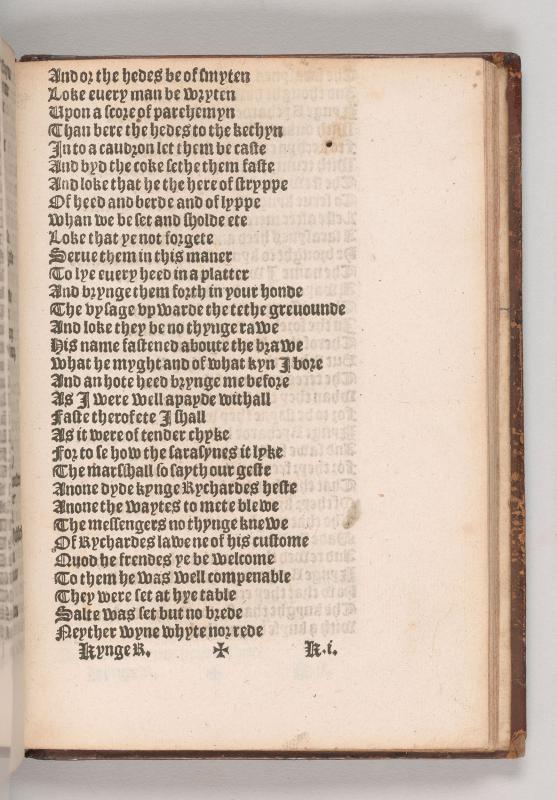 And or the hedes be of smyten
Loke euery man be wryten
Upon a score of parchemyn
Than bere the hedes to the kechyn
In to a caudron let them be caste
And byd the coke sethe them faste
And loke that he the here of stryppe
Of heed and berde and of lyppe
Whan we be set and sholde ete
Loke that ye not forgete
Serue them in this maner
To lye euery heed in a platter
And brynge them forth in your honde
The vysage vpwarde the tethe greuounde
And loke they be no thynge rawe
His name fastened aboute the brawe
What he myght and of what kyn I bore
And an hote heed brynge me before
As I were well apayde withall
Faste therof ete I shall
As it were of tender chyke
For to se how the sarasynes it lyke
The marshall so sayth our geste
Anone dyde kynge Rychardes heste
Anone the waytes to mete blewe
The messengers no thynge knewe
Of Rychardes lawe ne of his custome
Quod he frendes ye be welcome
To them he was well compenable
They were set at hye table
Salte was set but no brede
Neyther wyne whyte nor rede
Kynge R. ✠ K.i.